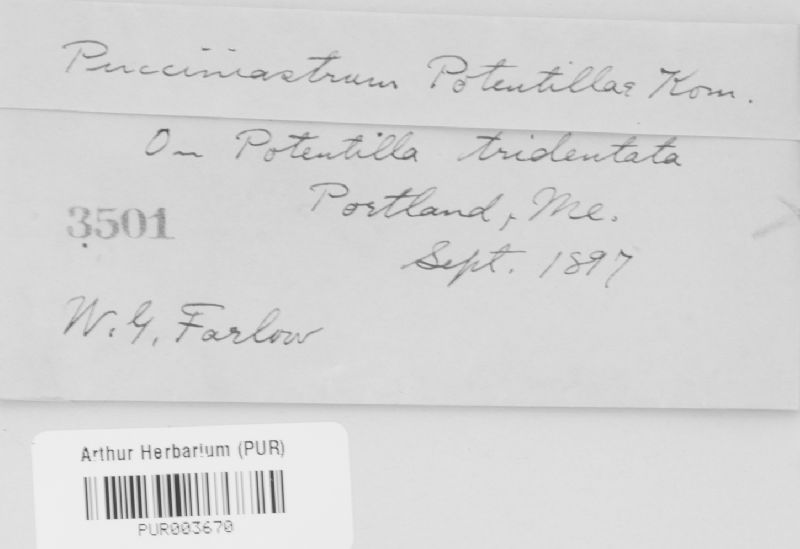 Pucciniastrum Potentillae Kom.
On Potentilla tridentata
3501
Portland, Me.
Sept. 1897
W. G. Farlow
Arthur Herbarium (PUR)
PUR003670